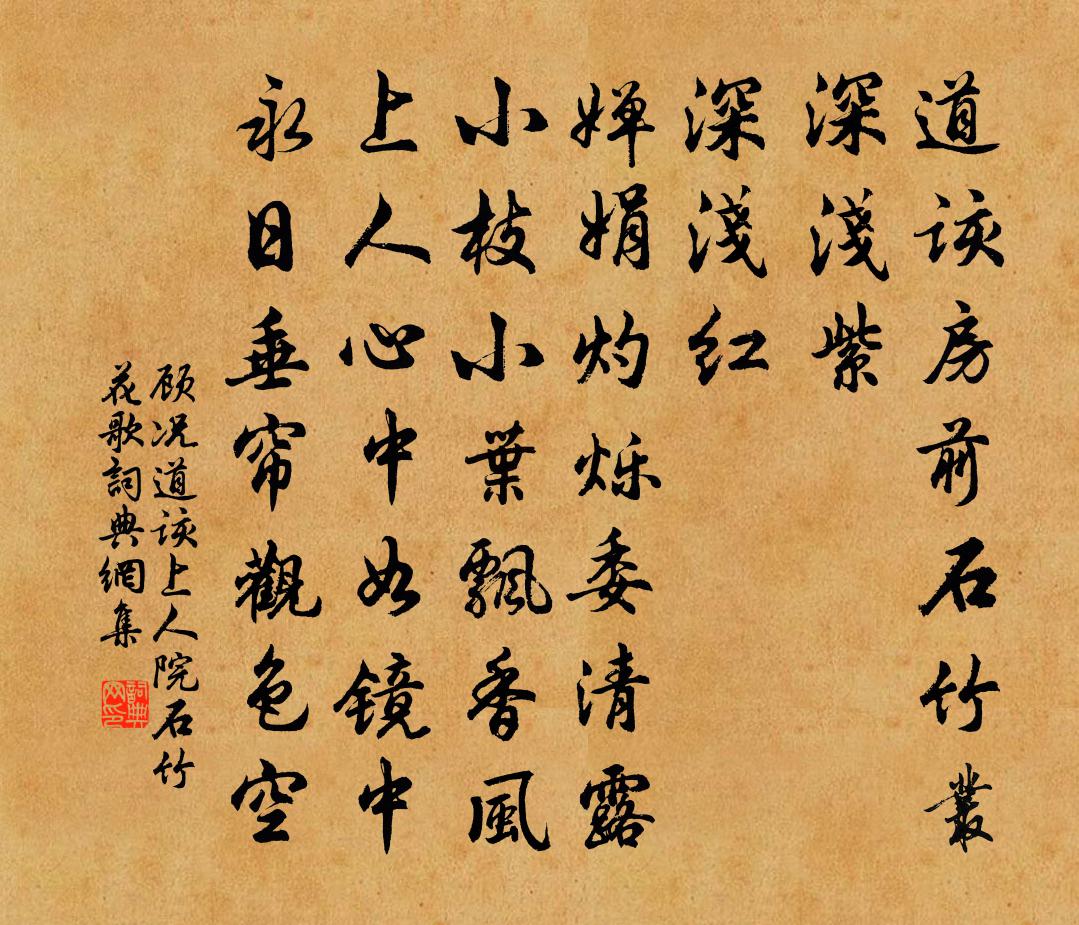 道该房前石竹叢
深淺紫
深淺紅
婵娟灼烁委清露
小枝小葉飄香風
上人心中如镜中
永日垂帘觀色空
顾况道该上人院石竹
花歌詞典網集
詞典网印